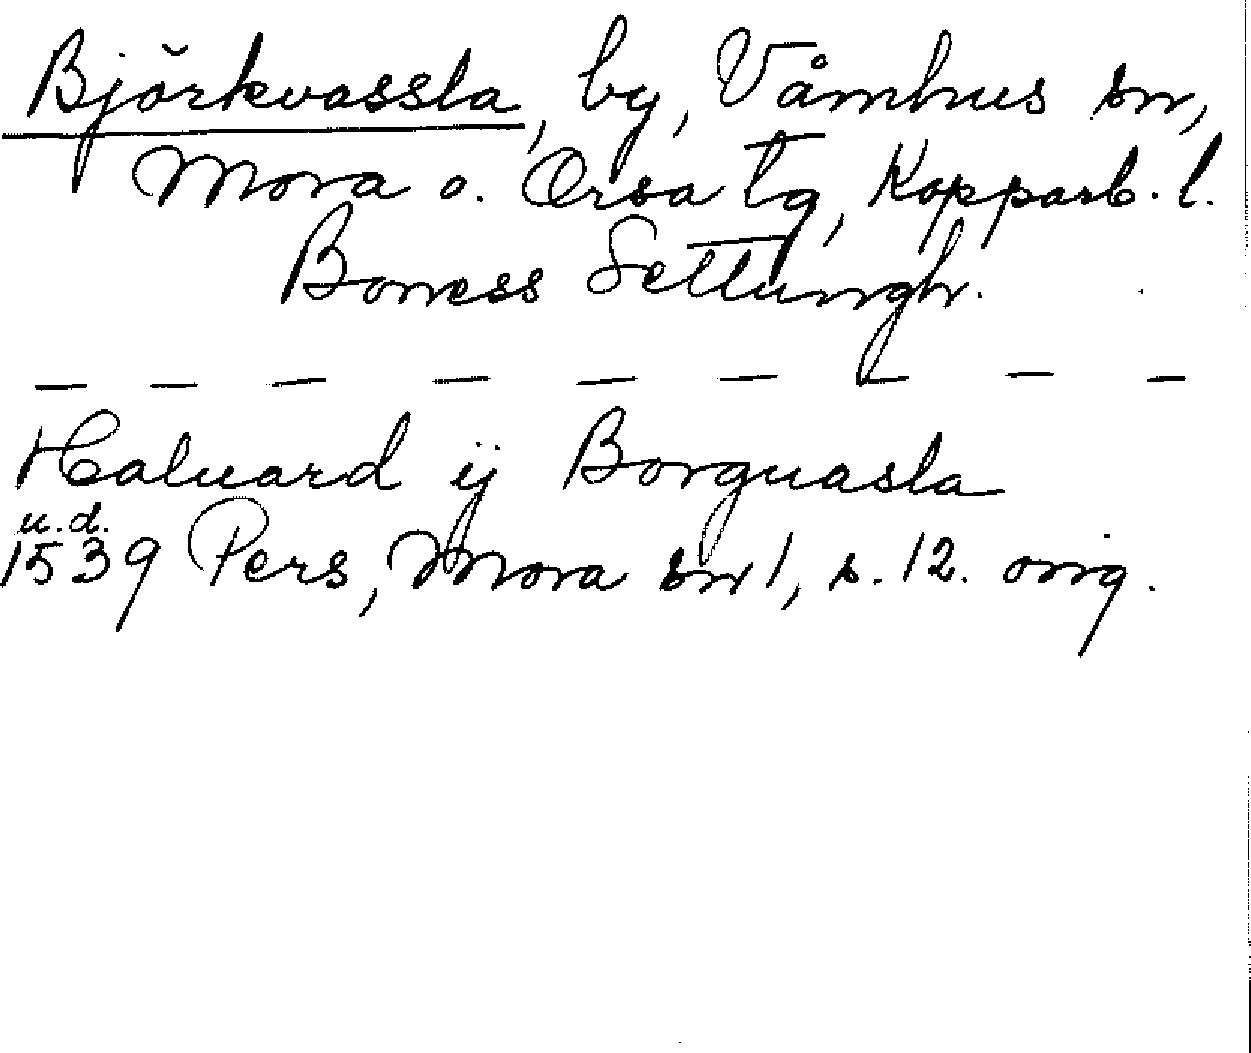 Björkvassla, by, Våmhus sn,
Mora o. Orsa tg, Kopparb. l.
Boness Settungh.
— — — — — — — — —
Haluard ij Borguasla
u.d.
1539 Pers, Mora sn 1, s. 12. orig.